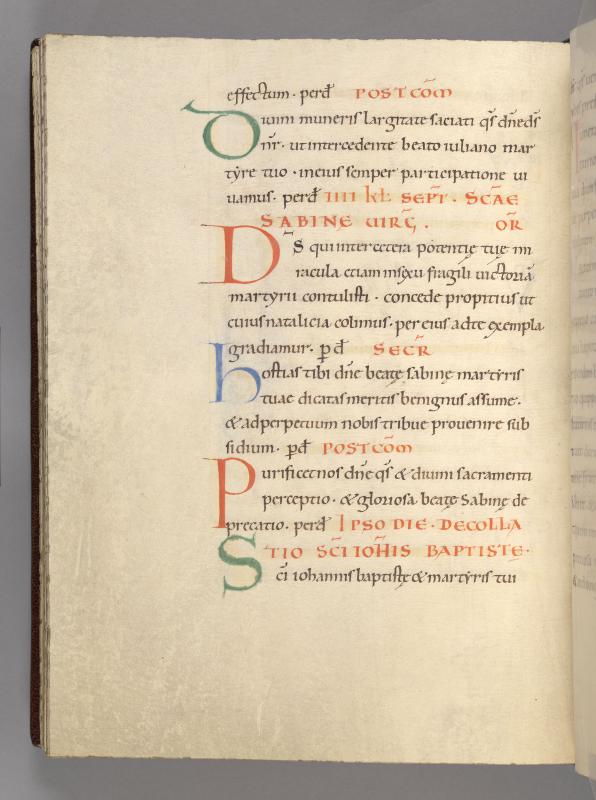 effectum · perd̄ POST COM̄
Diuini muneris largitate saciati qs̄ dn̄e ds̄
nr̄ · ut intercedente beato iuliano mar
tyre tuo · in eius semper participatione ui
uamus · perd̄ IIII KL SEPT̄ · SC̄AE
SABINE UIRḠ · OR̄
DS̄ qui inter cetera potentię tuę mi
racula etiam in sexu fragili uictoriā
martyrii contulisti · concede propitius ut
cuius natalicia colimus · per eius ad te exempla
gradiamur · p̄d̄ SECR̄
hostias tibi dn̄e beatę sabinę martyris
tuae dicatas meritis benignus assume ·
& ad perpetuum nobis tribue prouenire sub
sidium · p̄d̄ POST COM̄
Purificet nos dn̄e qs̄ & diuini sacramenti
perceptio · & gloriosa beatę Sabinę de
precatio · perd̄ IPSO DIE · DECOLLA
TIO SC̄I IOHIS BAPTISTĘ ·
Sc̄i iohannis baptistę & martyris tui